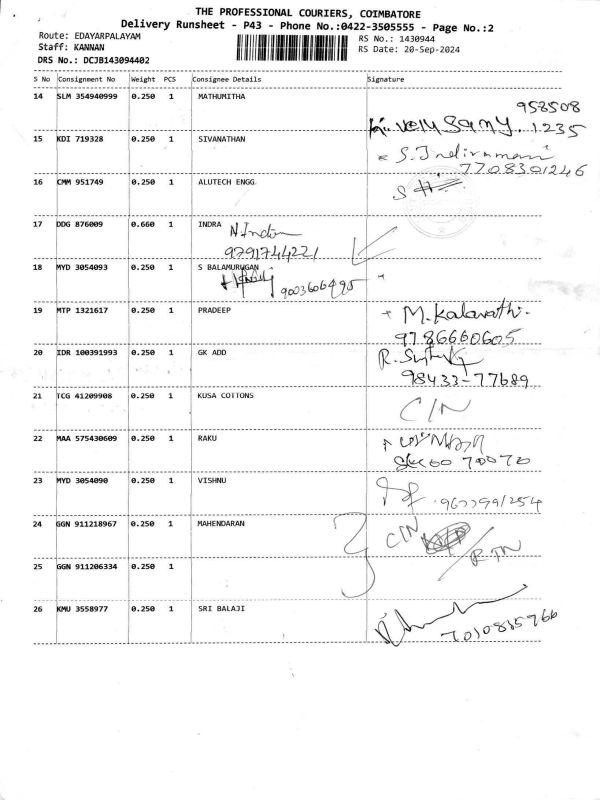 THE PROFESSIONAL COURIERS, COIMBATORE
Delivery Runsheet - P43 - Phone No.:0422-3505555 - Page No.:2
Route: EDAYARPALAYAM
RS No.: 1430944
Staff: KANNAN
RS Date: 20-Sep-2024
DRS No.: DCJB143094402
S No Consignment No Weight PCS Consignee Details Signature
14 SLM 354940999 0.250 1 MATHUMITHA
958508
velu Samy. 1235
15 KDI 719328 0.250 1 SIVANATHAN
S. Indiramani
7708301246
16 CMM 951749 0.250 1 ALUTECH ENGG
17 DDG 876009 0.660 1 INDRA
N. Indra
9791744221
18 MYD 3054093 0.250 1 S BALAMURUGAN
9003606495
19 MTP 1321617 0.250 1 PRADEEP
M. Kalavathi
9786660605
20 IDR 100391993 0.250 1 GK ADD
98433-77689
21 TCG 41209908 0.250 1 KUSA COTTONS
C/N
22 MAA 575430609 0.250 1 RAKU
70070
23 MYD 3054090 0.250 1 VISHNU
24 GGN 911218967 0.250 1 MAHENDARAN
C/N
RTN
25 GGN 911206334 0.250 1
26 KMU 3558977 0.250 1 SRI BALAJI